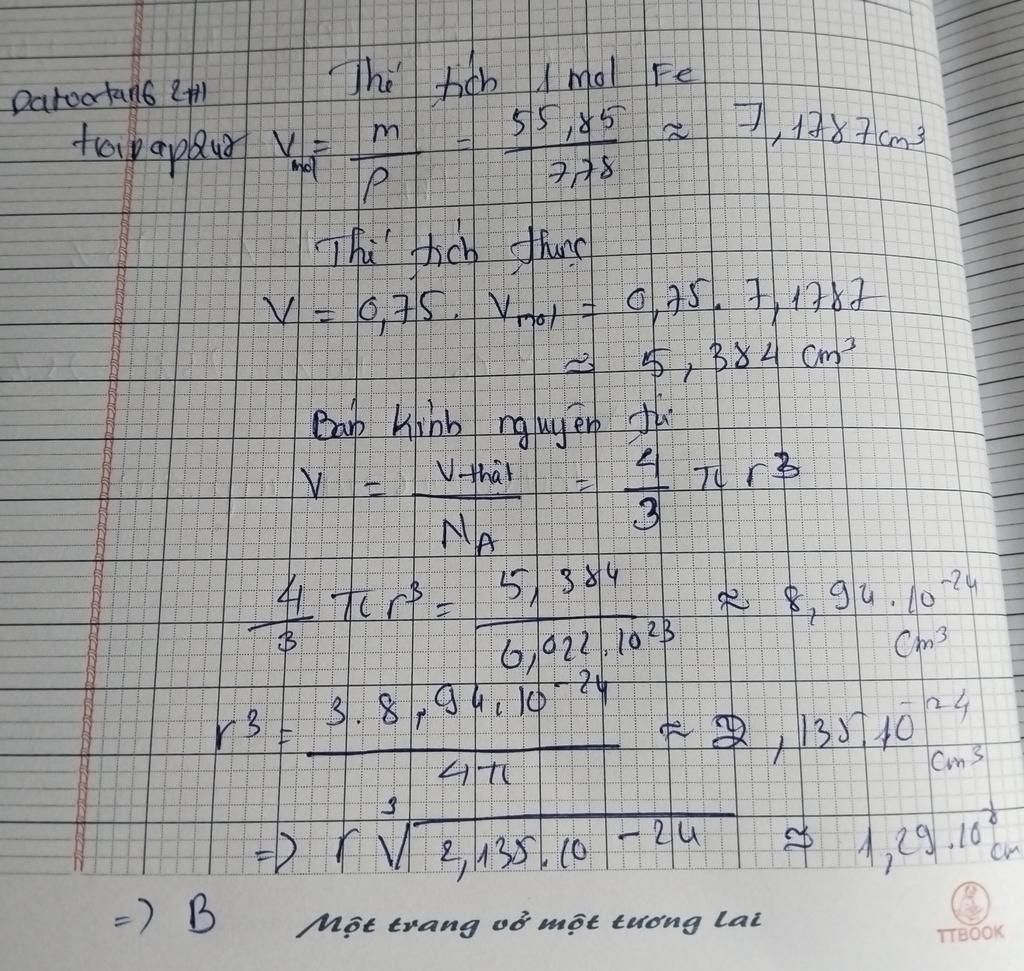 Thể tích 1 mol Fe
V mol = m / ρ = 55,85 / 7,78 ≈ 7,1787 cm³
Thể tích thực
V = 0,75. V mol = 0,75. 7,1787
≈ 5,384 cm³
Bán kính nguyên tử
V = V thật / N_A = 4/3 π r³
4/3 π r³ = 5,384 / 6,022.10²³ ≈ 8,94.10⁻²⁴ cm³
r³ = 3.8,94.10⁻²⁴ / 4π ≈ 2,135.10⁻²⁴ cm³
=> r ³√2,135.10⁻²⁴ ≈ 1,29.10⁸ cm
=> B
Một trang vở một tương lai
TTBOOK